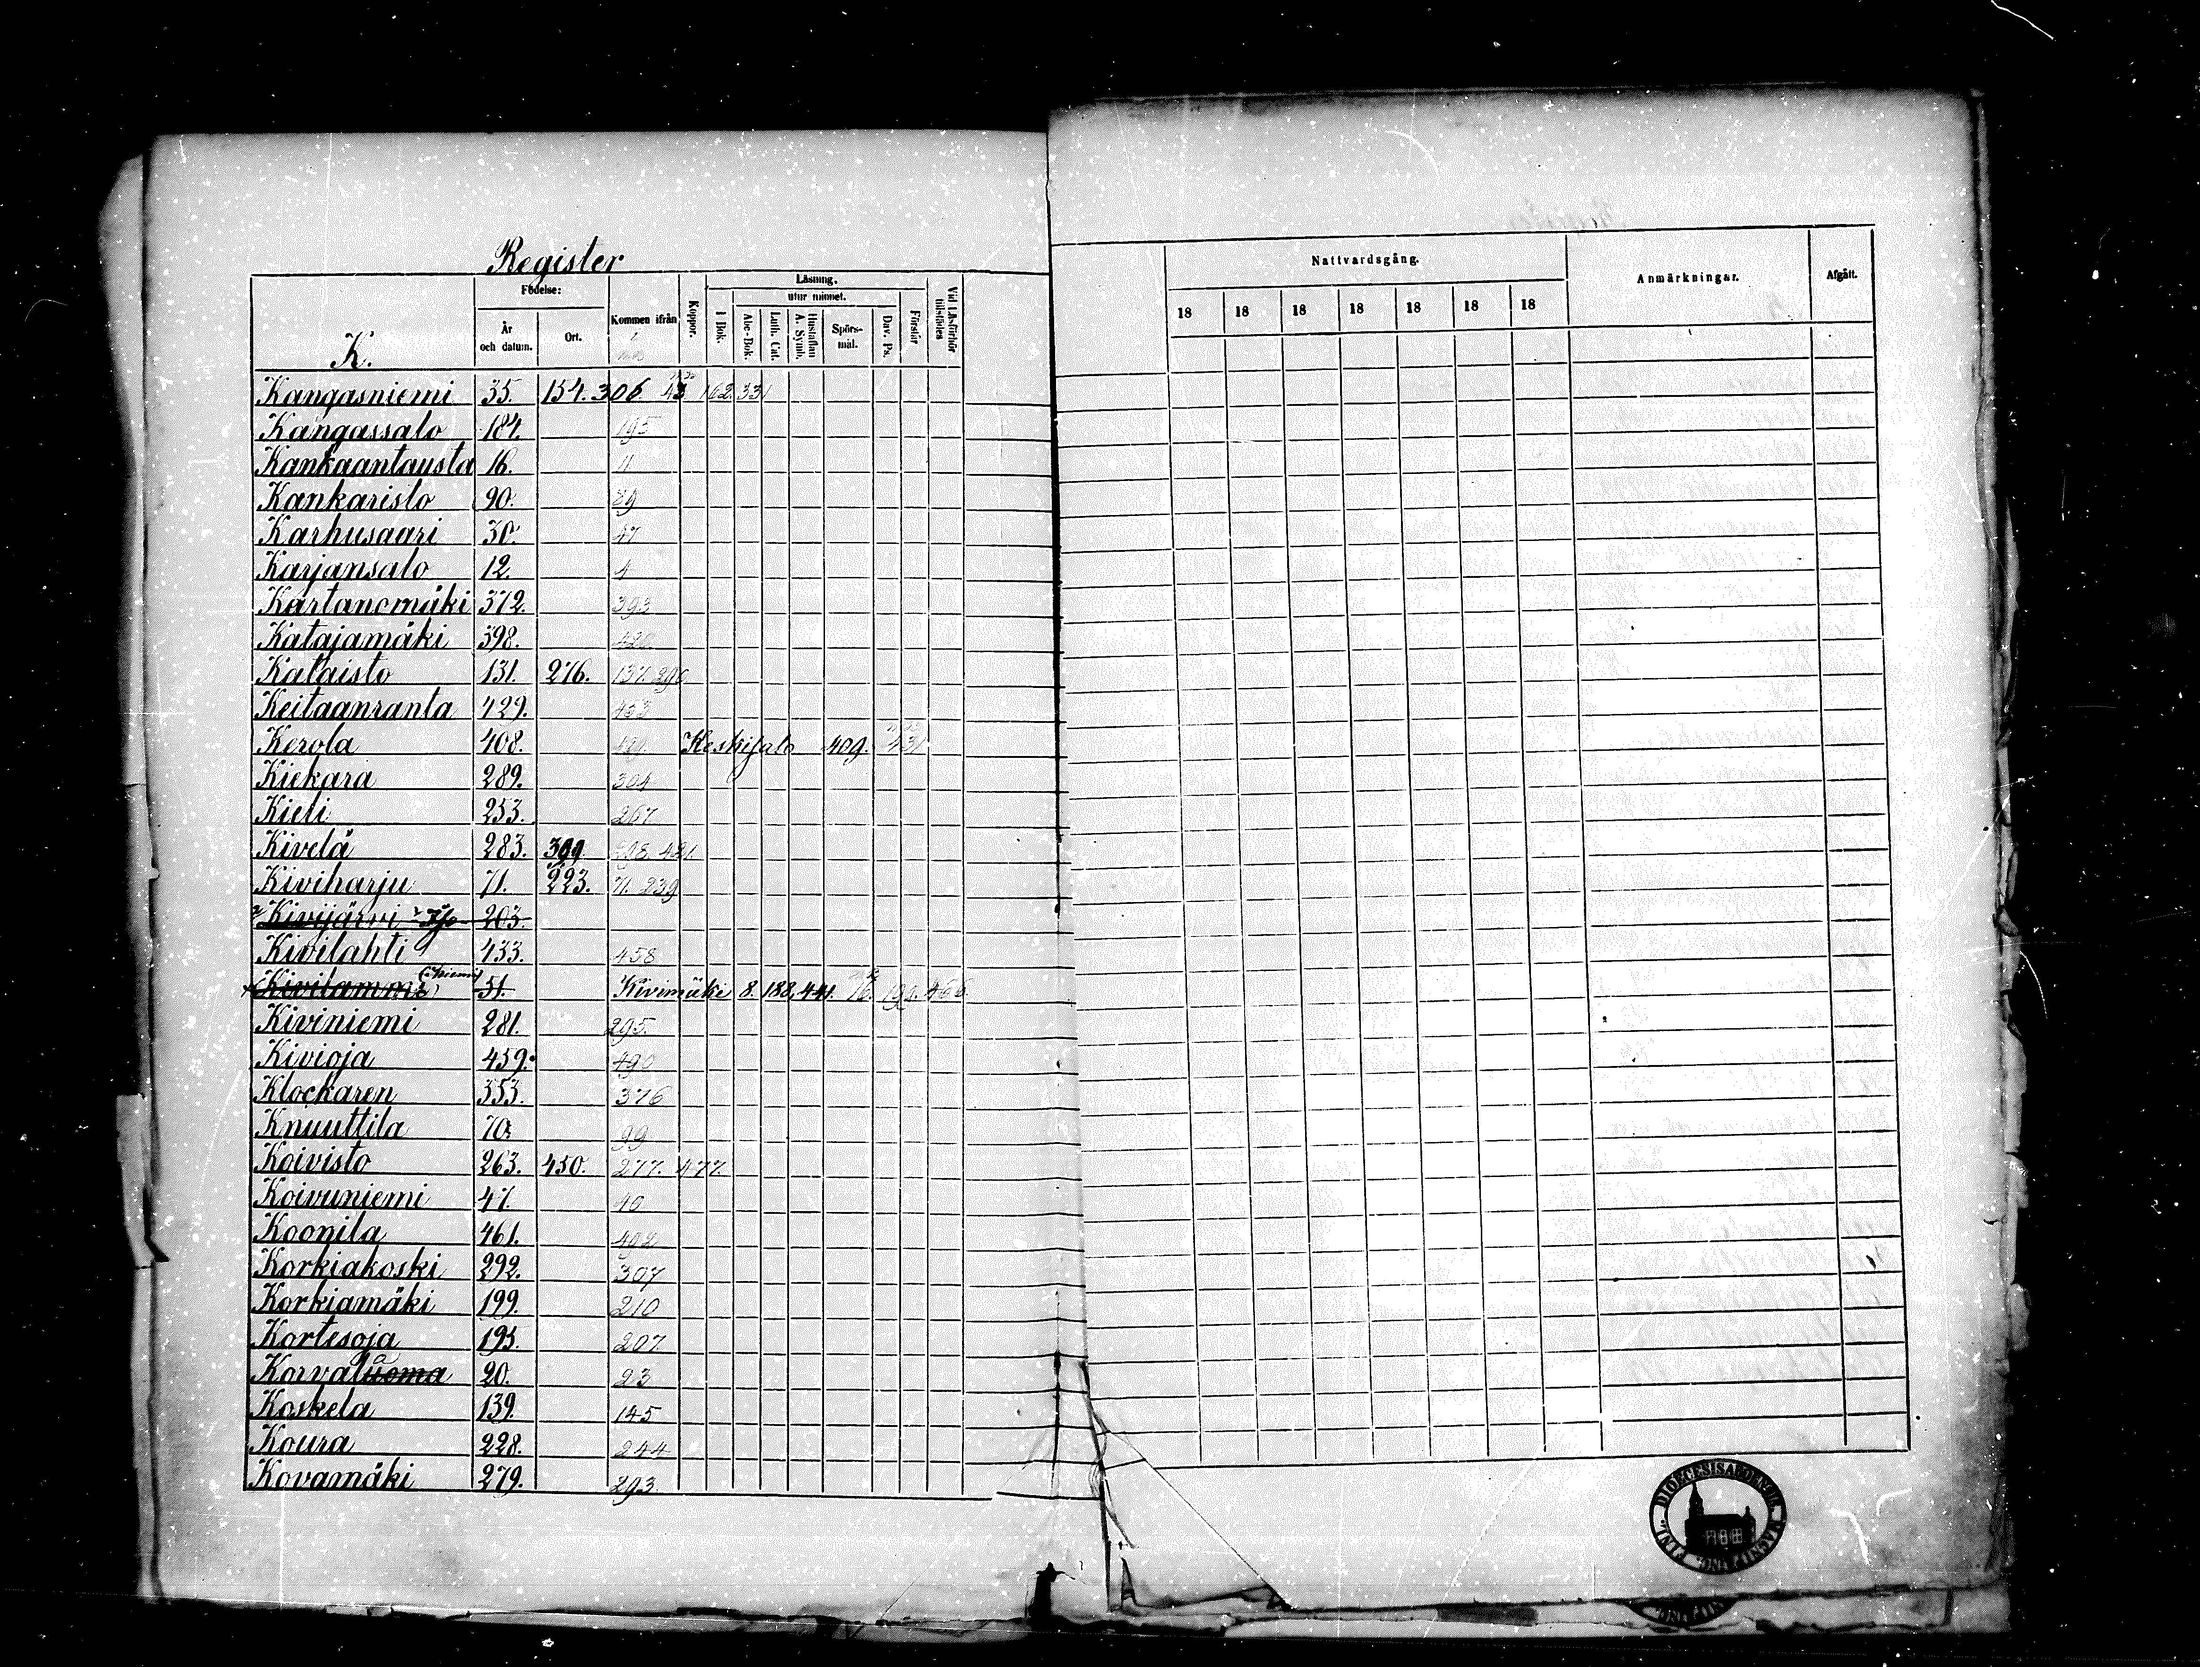 Register
K.
Födelse:
År och datum.
Ort.
Kommen ifrån
Koppor.
Läsning.
utur minnet.
I Bok.
Abc-Bok.
Luth. Cat.
Hustaflan A. Symb.
Spörs-mål.
Dav. Ps.
Förstår
Vid Läsförhör tillstädes
Nattvardsgång.
18 18 18 18 18 18 18
Anmärkningar.
Afgått.
Kangasniemi 35. 154. 306 162. 331
Kangassalo 184. 195
Kankaantausta 16. 11
Kankaristo 90. 89
Karhusaari 30. 47
Karjansalo 12. 4
Kartanomäki 372. 393
Katajamäki 398. 420
Kataisto 131. 276. 137. 290
Keitaanranta 429. 453
Kerola 408. Keskisalo 409. 431
Kiekara 289. 304
Kieli 253. 267
Kivelä 283. 399 298. 421
Kiviharju 71. 223. 71. 239
Kivijärvi 203.
Kivilahti 433. 458
Kivilammi (:niemi) 51. Kivimäki 8. 188. 441. 76. 466
Kiviniemi 281. 295.
Kivioja 459. 490
Klockaren 353. 376
Knuuttila 70. 99
Koivisto 263. 450. 277. 477.
Koivuniemi 47. 40
Koonila 461. 492
Korkiakoski 292. 307
Korkiamäki 199. 210
Kortesoja 195. 207.
Korvaluoma a 20. 23
Koskela 139. 145
Koura 228. 244
Kovamäki 279. 293.
DIOECESIS ABOENSIS MAGNI PRINC. FINL.